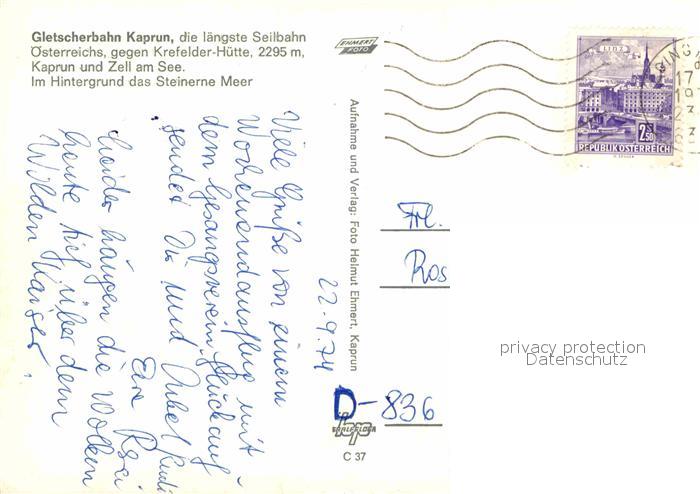 Gletscherbahn Kaprun, die längste Seilbahn
Österreichs, gegen Krefelder-Hütte, 2295 m,
Kaprun und Zell am See.
Im Hintergrund das Steinerne Meer
EHMERT
FOTO
LINZ
2.50
REPUBLIK ÖSTERREICH
Aufnahme und Verlag: Foto Helmut Ehmert, Kaprun
22-9.74
Viele Grüße von einem
Wochenendausflug mit
dem Gesangsverein Glückauf
sendet Du und Onkel Rudi
Leider hängen die Wolken
heute tief über dem
Wilden Kaiser.
Frl.
Ros
D-836
C 37
privacy protection
Datenschutz